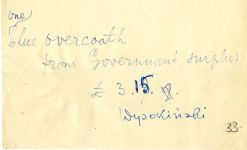 one
blue overcoath
from Government surplus.
£ 3.15.
Wysokiński
33-